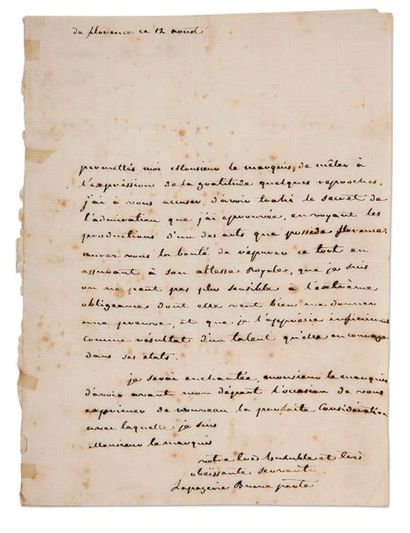 de florence ce 12 aoust
permettés moi Monsieur le marquis, de mêler à
l'expression de la gratitude quelques reproches.
j'ai à vous accuser d'avoir trahi le secret de
l'admiration que j'ai eprouvée, en voyant les
productions d'un des arts que possede florence.
aurez vous la bonté de réparer ce tort en
assurant à son altesse royale, que je suis
on ne peut pas plus sensible à l'extrême
obligeance dont elle veut bien me donner
une preuve, et que je l'apprécie infiniment
comme résultat d'un talent qu'elle encourage
dans ses états.
je serai enchantée, monsieur le marquis
d'avoir avant mon départ l'occasion de vous
exprimer de nouveau la parfaite consideration
avec laquelle je suis
Monsieur le marquis
votre très humble et très
obéissante servante
Lapagerie Buonaparte